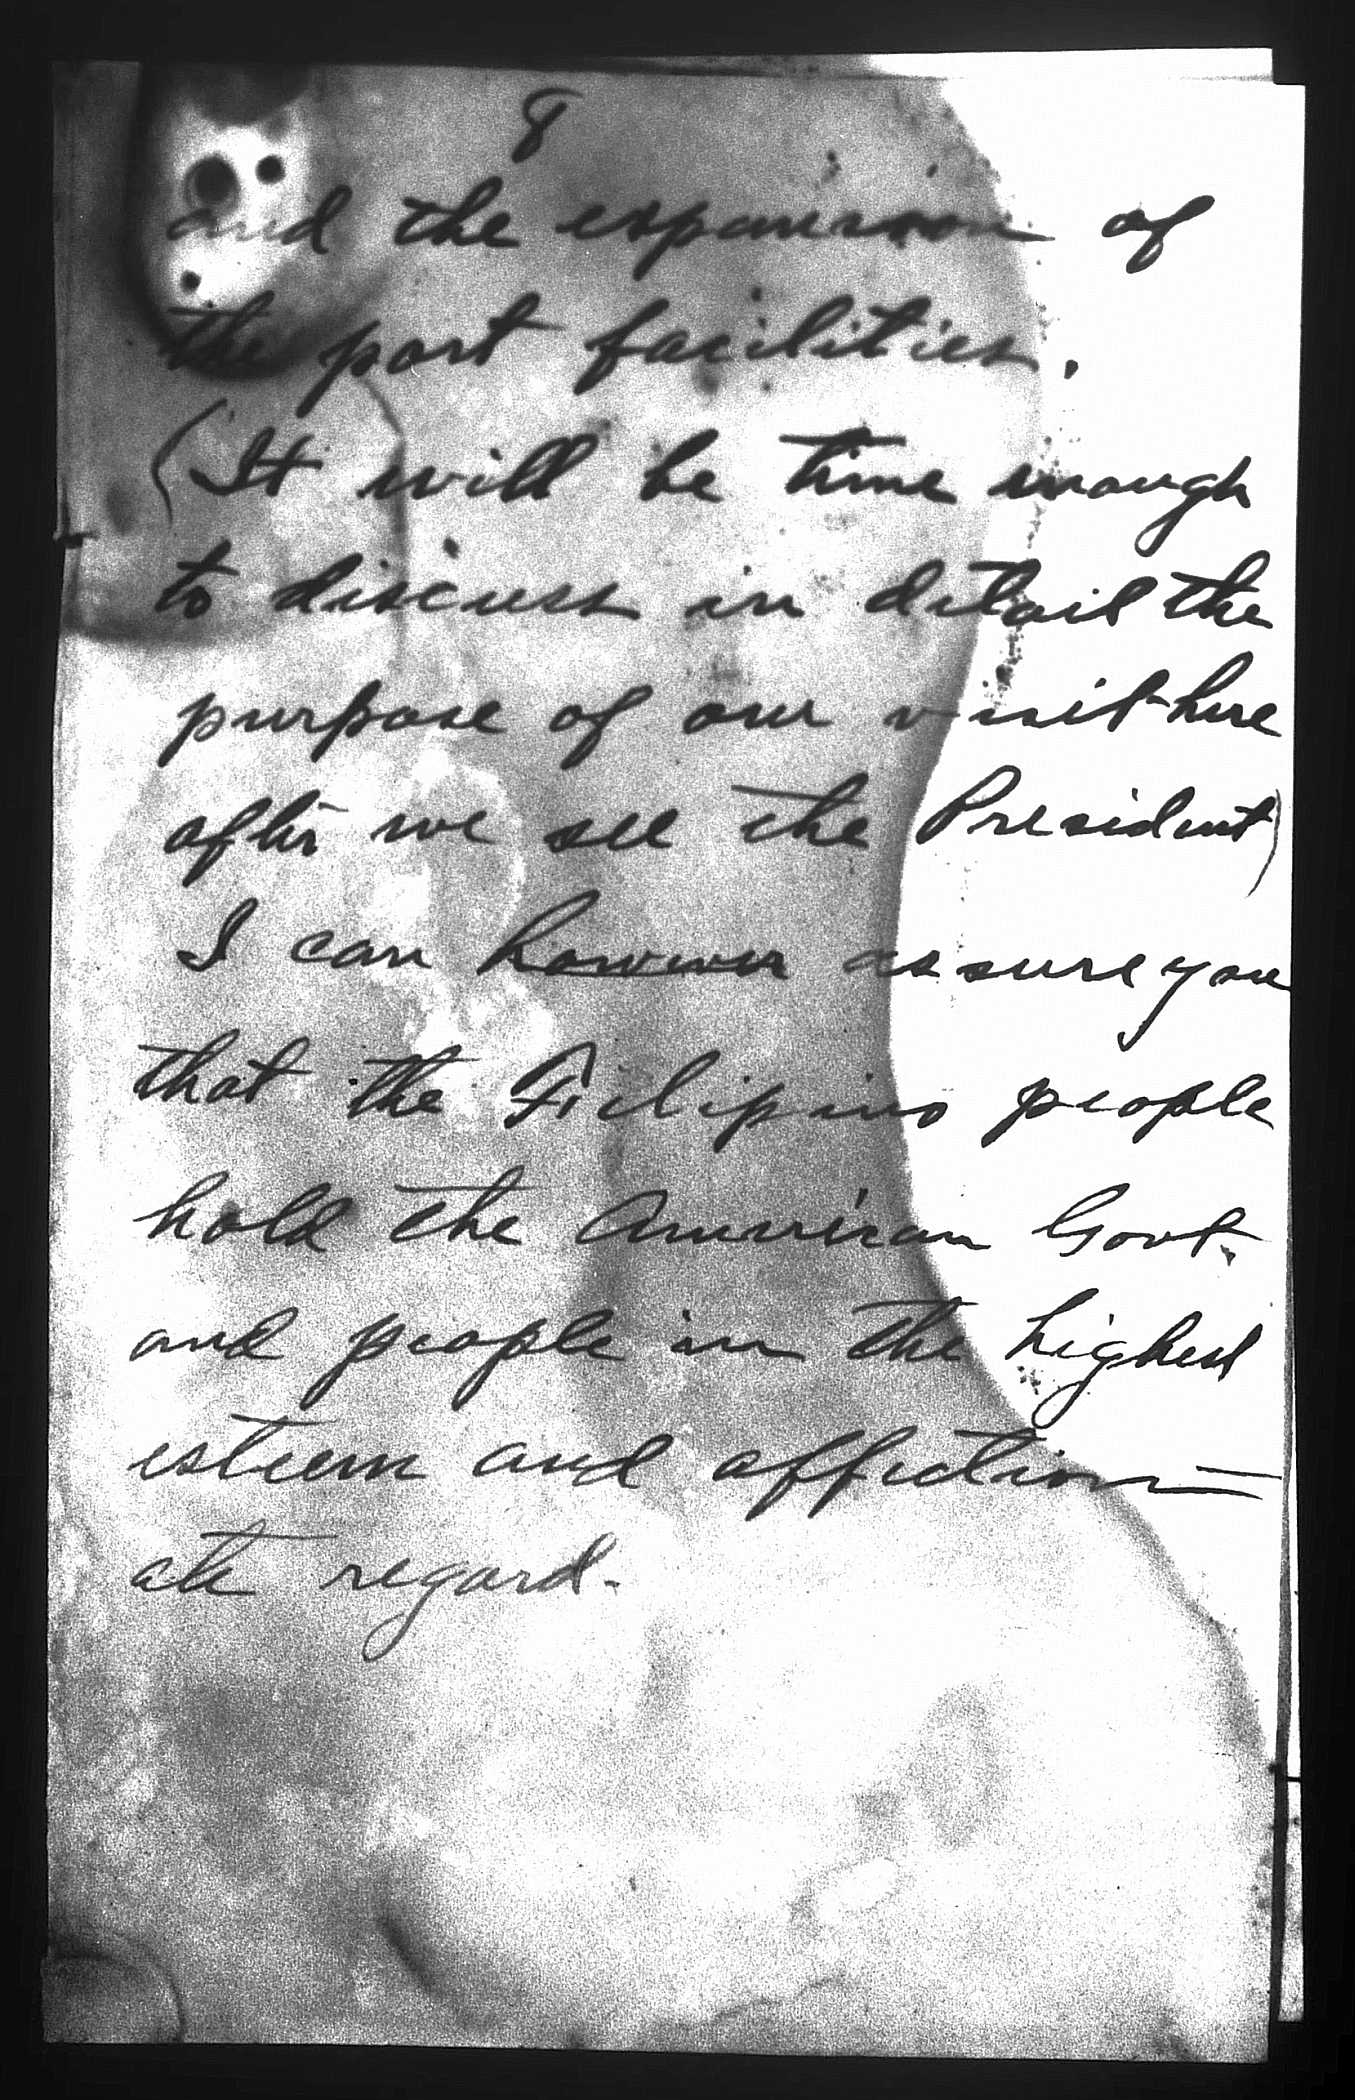 8
and the expansion of
the port facilities.
(It will be time enough
to discuss in detail the
purpose of our visit here
after we see the President)
I can however assure you
that the Filipino people
hold the American Govt.
and people in the highest
esteem and affection=
ate regard.